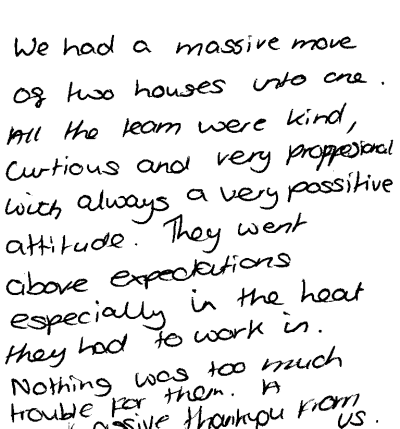 We had a massive move
of two houses into one.
All the team were kind,
Curtious and very proppesional
with always a very possitive
attitude. They went
above expectations
especially in the heat
they had to work in.
Nothing was too much
trouble for them. A
massive thankyou from
us.